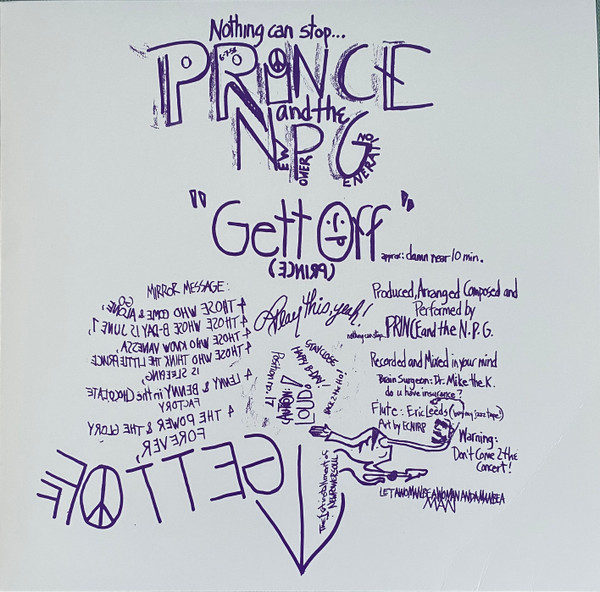 Nothing can stop...
PRINCE
6-7-58
and the
NPG
NEW POWER GENERATION
"Gett Off"
approx: damn near 10 min.
(PRINCE)
MIRROR MESSAGE:
4 THOSE WHO COME & GO ALONE,
4 THOSE WHOSE B-DAY IS JUNE 7,
4 THOSE WHO KNOW VANESSA,
4 THOSE WHO THINK THE LITTLE PRINCE
IS SLEEPING,
4 LENNY & BENNY in the CHOCOLATE
FACTORY
4 THE POWER & THE GLORY
FOREVER,
GETT OFF
Play this, yeah!
STAY CLOSE
HAPPY B-DAY!
BACK 2 the Ho!
Position on it
CAUTION:
LOUD!
The 1st installment of
NEWPOWERSOUL
Produced, Arranged Composed and
Performed by
nothing can stop... PRINCE and the N.P.G.
Recorded and Mixed in your mind
Brain Surgeon: Dr. Mike the K.
do u have insurance?
Flute: Eric Leeds (want my jazz tape!)
Art by ECNIRP
Warning:
Don't Come 2 the
Concert!
LET A WOMAN BE A WOMAN AND A MAN BE A
MAN